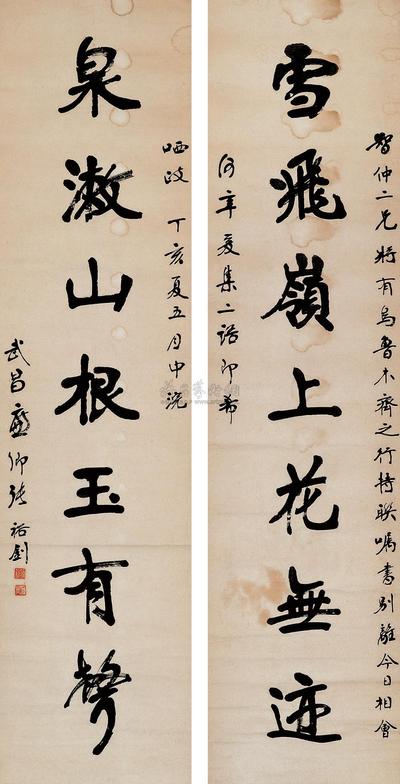 智仲二兄將有烏魯木齊之行持聯嘱書别離今日相會
雪飛嶺上花無迹
何年爰集二語即希
哂政 丁亥夏五月中浣
泉漱山根玉有聲
武昌廉卿張裕釗